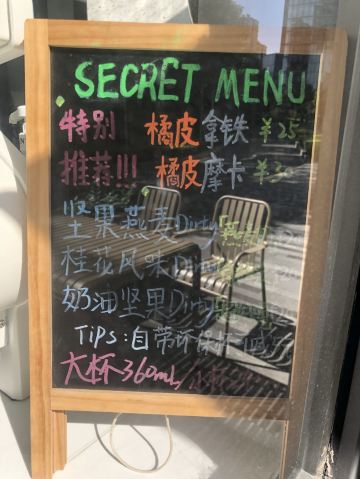 SECRET MENU
特别 橘皮拿铁 ¥25
推荐!!! 橘皮摩卡
坚果燕麦Dirty
桂花风味Dirty
奶油坚果Dirty
TIPS:自带环保杯
大杯360mL/小杯